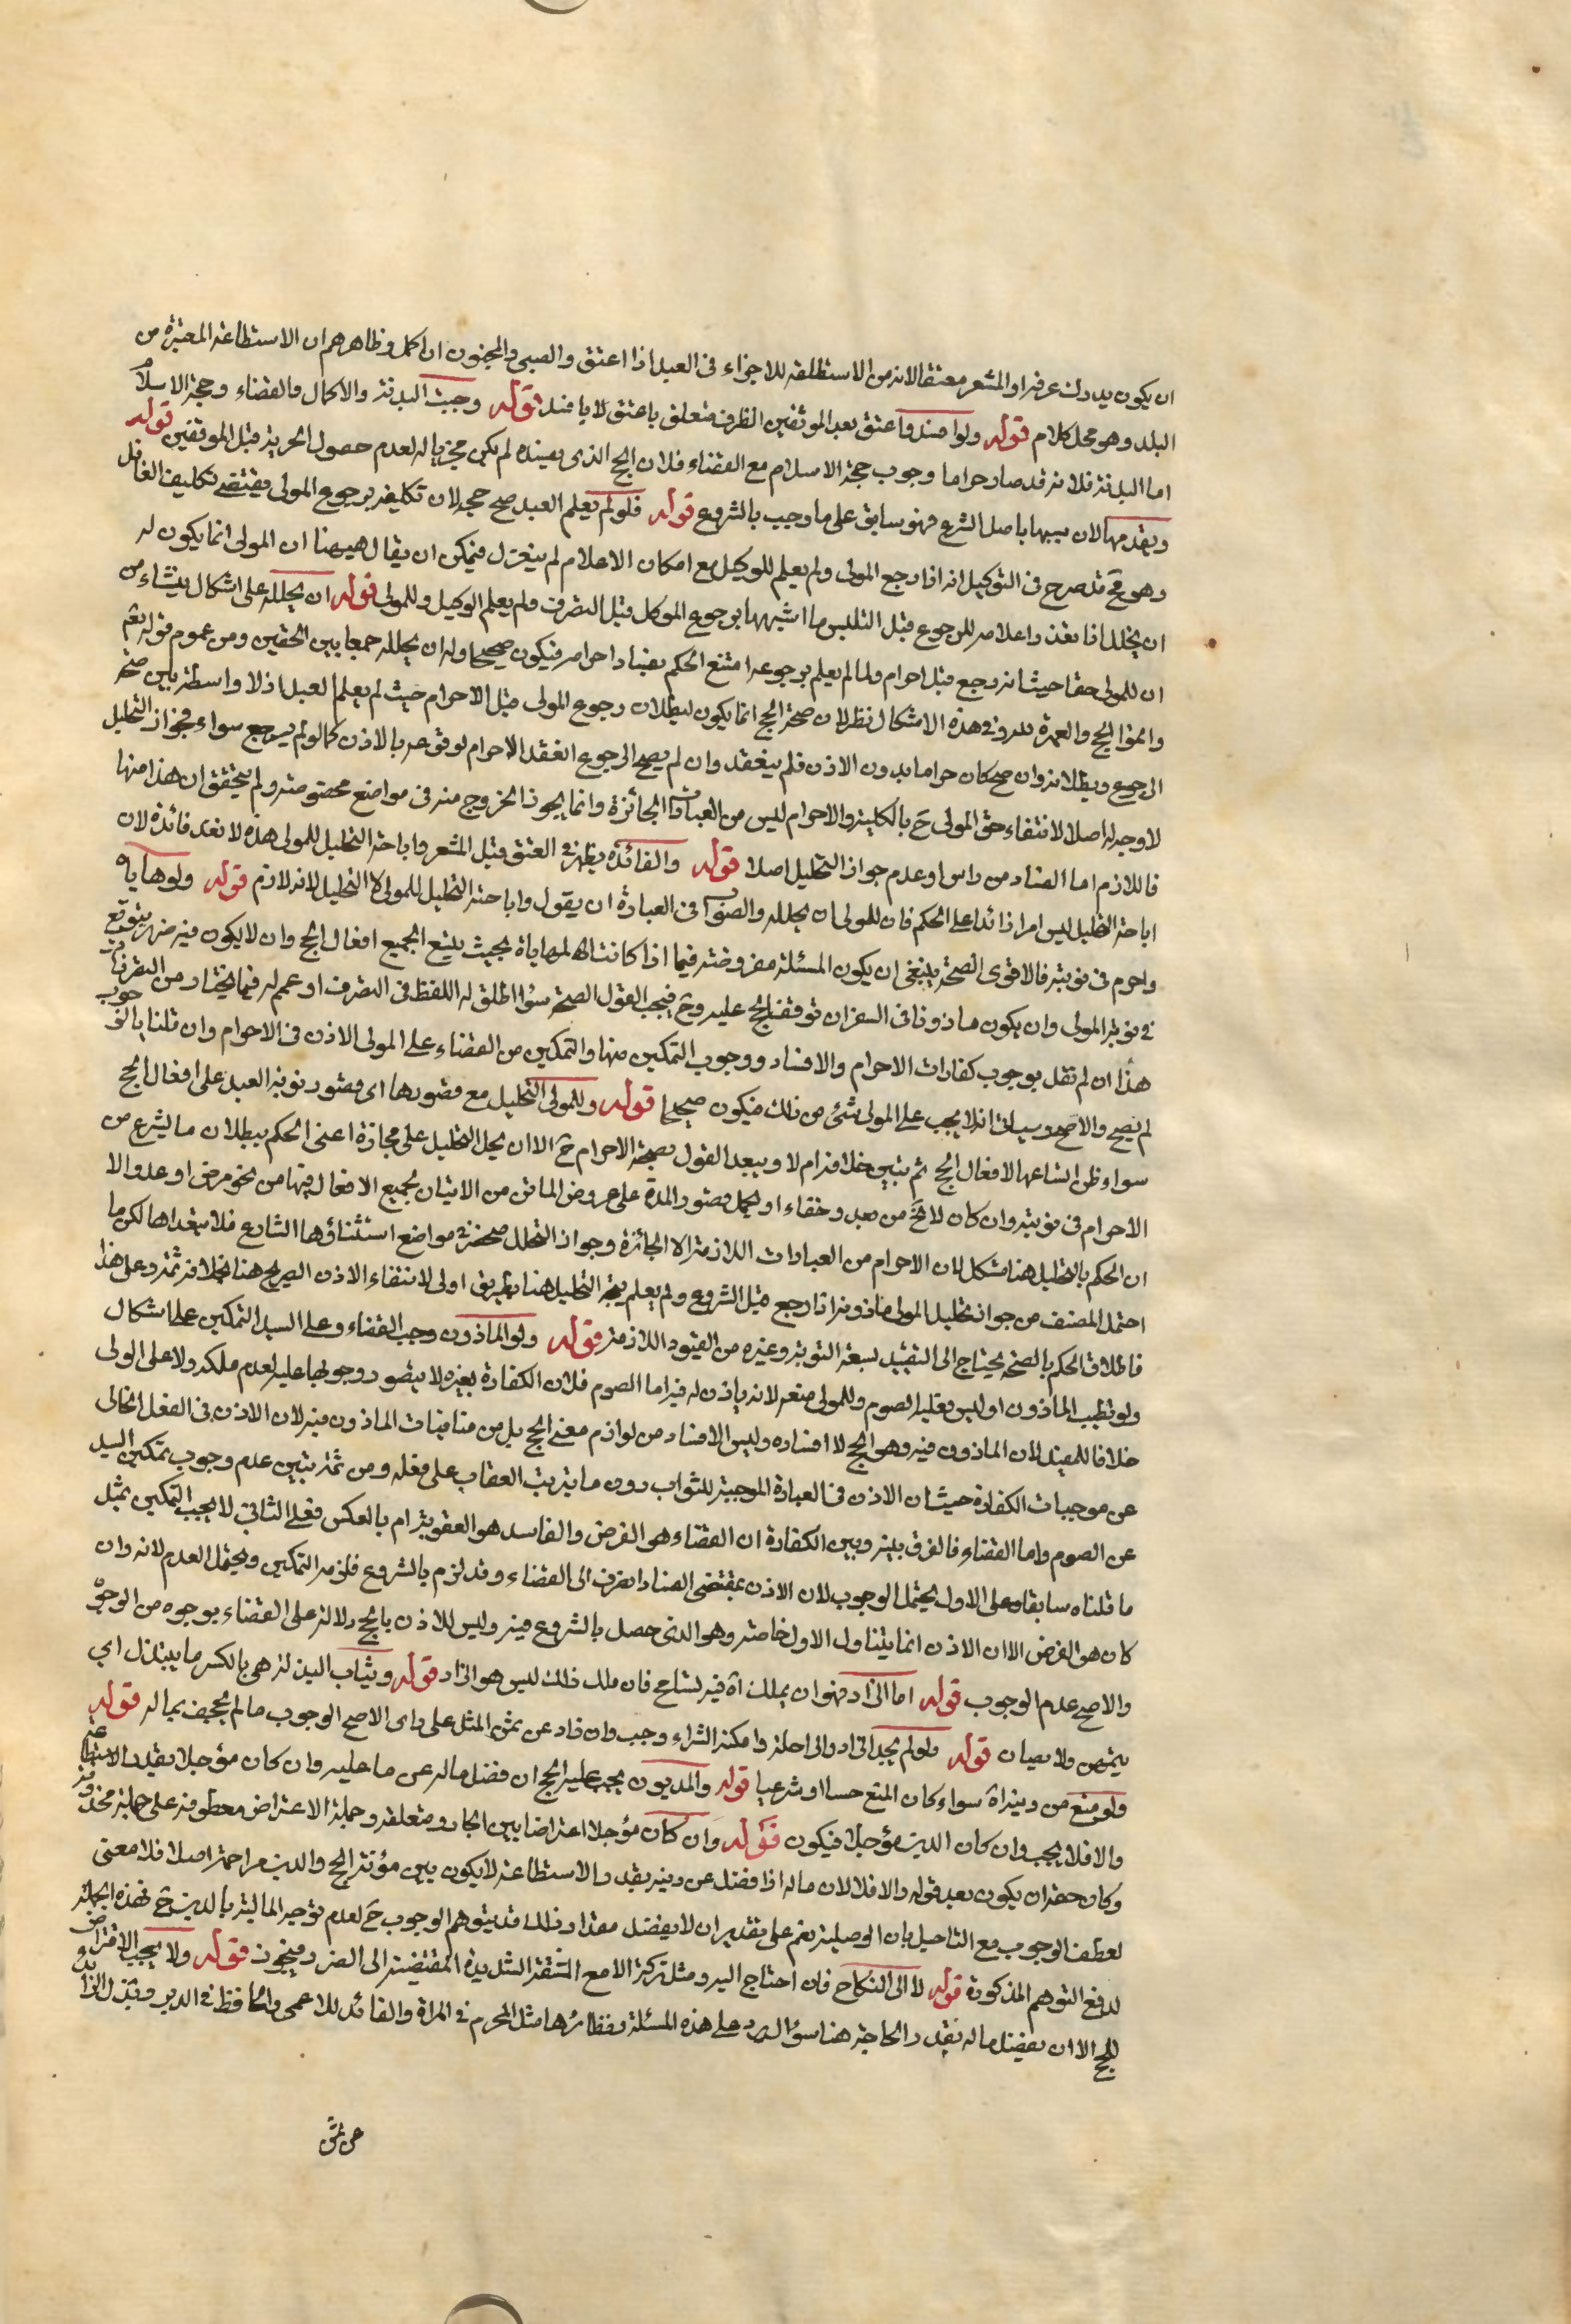 ان يكون يدرك عرفة او المشعر معتقا لانه من الاستطاعة للاجزاء في العبد اذا اعتق والصبي والمجنون ان اكمل وظاهرهم ان الاستطاعة المعتبرة من
البلد وهو محل كلام قوله ولو افسد فاعتق بعد الموقفين الظرف متعلق باعتق لا بافسد قوله وجبت البدنة والاكمال والقضاء وحجة الاسلام
اما البدنة فلانه قد صار حراما وجوب حجة الاسلام مع القضاء فلان الحج الذي يفسده لم يكن مجزيا له لعدم حصول الحرية قبل الموقفين قوله
ويقدمها لان سببها باصل الشرع فهو سابق على ما وجب بالشروع قوله فلو لم يعلم العبد صح حجه لان تكليفه برجوع المولى يقتضي تكليف الغافل
وهو قبح قد صرح في التوكيل انه اذا رجع المولى ولم يعلم للوكيل مع امكان الاعلام لم ينعزل فيمكن ان يقال هيهنا ان المولى انما يكون له
ان يحلل اذا تعذر اعلامه للرجوع قبل التلبس ما اشبهها برجوع الموكل قبل التصرف ولم يعلم الوكيل وللمولى قوله ان يحلله على اشكال ينشاء من
ان للمولى حقا حيث انه رجع قبل احرام ولما لم يعلم برجوعه امتنع الحكم بفساد احرامه فيكون صحيحا وله ان يحلله جمعا بين الحقين ومن عموم قوله تعم
واتموا الحج والعمرة لله وفي هذه الاشكال نظر لان صحة الحج انما يكون لبطلان رجوع المولى قبل الاحرام حيث لم يعلم العبد اذ لا واسطة بين صحة
الرجوع وبطلانه وان صح كان حراما بدون الاذن فلم ينعقد وان لم يصح الرجوع انعقد الاحرام لوقوعه بالاذن كما لو لم يرجع سواء فجواز التحليل
لا وجه له اصلا لانتفاء حق المولى ح بالكلية والاحرام ليس من العبادات الجائزة وانما يجوز الخروج منه في مواضع مخصوصة ولم يتحقق ان هذا منها
فاللازم اما الفساد من راس او عدم جواز التحليل اصلا قوله والفائدة يظهر في العتق قبل المشعر واباحة التحليل للمولى هذه لا تعد فائدة لان
اباحة التحليل ليس امرا زائدا على الحكم فان للمولى ان يحلله والصواب في العبادة ان يقول واباحة التحليل للمولى لا التحليل لانه لازم قوله ولو هاياه
واحرم في نوبته فالاقوى الصحة ينبغي ان يكون المسئلة مفروضة فيما اذا كانت المهاياة بحيث يسع الجميع افعال الحج وان لا يكون فيه ضرر يتوقع
في نوبة المولى وان يكون ماذونا في السفر ان توقف الحج عليه وح فيجب القول الصحة سوا اطلق له اللفظ في التصرف او عمم له فيما يختار من التصرفات
هذا ان لم نقل بوجوب كفارات الاحرام والافساد ووجوب التمكين منها والتمكين من القضاء على المولى الاذن في الاحرام وان قلنا بالوجوب
لم يصح والاصح وسياتي انه لا يجب على المولى شئ من ذلك فيكون صحيحا قوله وللمولى التحليل مع قصورها اي قصور نوبة العبد على افعال الحج
سواء ظن اتساعها لافعال الحج ثم تبين خلافه ام لا ويبعد القول بصحة الاحرام ح الا ان يحل التحليل على مجازه اعني الحكم ببطلان ما ليشرع من
الاحرام في نوبته وان كان لا يخ من بعد وخفاء او يحمل قصور المدة على عروض المانع من الاتيان بجميع الافعال فيها من نحو مرض او عدو الا
ان الحكم بالتحليل هنا مشكل لان الاحرام من العبادات اللازمة الا الجائزة وجواز التحلل منحصر في مواضع استثناؤها الشارع فلا يتعداها لكن ما
احتمل المصنف من جواز تحليل المولى ماذونه اذا رجع قبل الشروع ولم يعلم يتجه التحليل هنا بطريق اولى لانتفاء الاذن الصريح هنا بخلافه ثمة وعلى هذا
فاطلاق الحكم بالصحة يحتاج الى التقييد بسعة النوبة وغيره من القيود اللازمة قوله ولو الماذون وجب القضاء وعلى السيد التمكين على اشكال
ولو تطيب الماذون او لبس فعليه الصوم وللمولى منعه لانه ياذن له فيه اما الصوم فلان الكفارة بغيره لا يتصور وجوبها عليه لعدم ملكه ولا على الولى
خلافا للمفيد لان الماذون فيه وهو الحج لا افساده وليس الافساد من لوازم معنى الحج بل من منافيات الماذون فيه لان الاذن في الفعل الخالى
عن موجبات الكفارة حيث ان الاذن في العبادة الموجبة للثواب دون ما يترتب العقاب على فعله ومن ثمة يتبين عدم وجوب تمكين السيد
عن الصوم واما القضاء فالفرق بينه وبين الكفارة ان القضاء هو الفرض والفاسد هو العقوبة ام بالعكس فعلى الثاني لا يجب التمكين بمثل
ما قلناه سابقا وعلى الاول يحتمل الوجوب لان الاذن بمقتضى الفساد انصرف الى القضاء وقد لزم بالشروع فلزمه التمكين ويحتمل العدم لانه وان
كان هو الفرض الا ان الاذن انما يتناول الاول خاصة وهو الذي حصل بالشروع فيه وليس للاذن بالحج دلالة على القضاء بوجوه من الوجوه
والاصح عدم الوجوب قوله اما الزاد فهو ان يملك اه فيه تسامح فان ملك ذلك ليس هو الزاد قوله وثياب البذلة هي بالكسر ما يبتذل اي
يمتهن ولا يصان قوله ولو لم يجد الزاد والراحلة وامكنه الشراء وجب وان زاد عن ثمن المثل على راي الاصح الوجوب ما لم يجحف بماله قوله
ولو منع من دينه اه سواء كان المنع حسا او شرعيا قوله والمديون يجب عليه الحج ان فضل ماله عن ما عليه وان كان مؤجلا بقدر الاستطاعة
والا فلا يجب وان كان الدين مؤجلا فيكون قوله وان كان مؤجلا اعتراضا بين الجار ومتعلقه وجملة الاعتراض معطوفة على جملة محذوفة
وكان حقه ان يكون بعد قوله والا فلا لان ماله اذا فضل عن دينه بقدر الاستطاعة لا يكون بين مؤنة الحج والدين مزاحمة اصلا فلا معنى
لعطف الوجوب مع التاجيل بان الوصلية نعم على تقدير ان لا يفضل مقدار ذلك قد يتوهم الوجوب ح لعدم توجه المالية بالدين ح فهذه الجملة
لدفع التوهم المذكورة قوله لا الى النكاح فان احتاج اليه ومثل تركه الا مع المشقة الشديدة المقتضية الى الضرر فيجوز قوله ولا يجب الاقتراض
للحج الا ان يفضل ماله بقدر الحاجة هنا سؤال يرد على هذه المسئلة ونظائرها مثل المحرم في المراة والقائد للاعمى والحافظ في الدين وبذل الزائد
عن ثمن